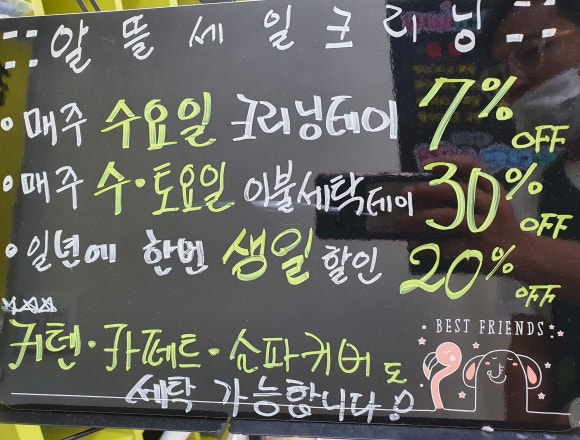 :: 알뜰세일크리닝 ::
• 매주 수요일 크리닝데이 7% OFF
• 매주 수·토요일 이불세탁데이 30% OFF
• 일년에 한번 생일 할인 20% OFF
☆☆☆
커텐·카페트·쇼파커버도
세탁 가능합니다!
BEST FRIENDS